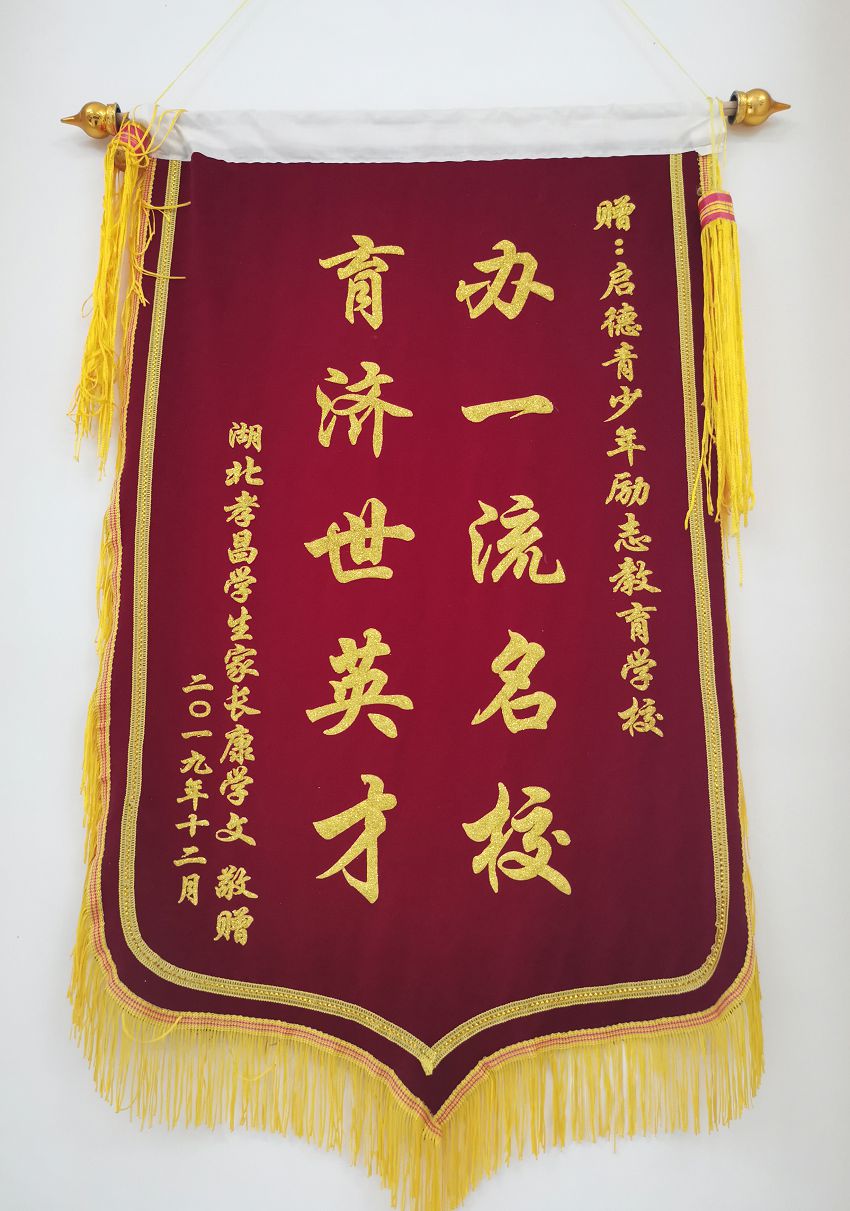 赠：启德青少年励志教育学校
办一流名校
育济世英才
湖北孝昌学生家长康学文 敬赠
二〇一九年十二月